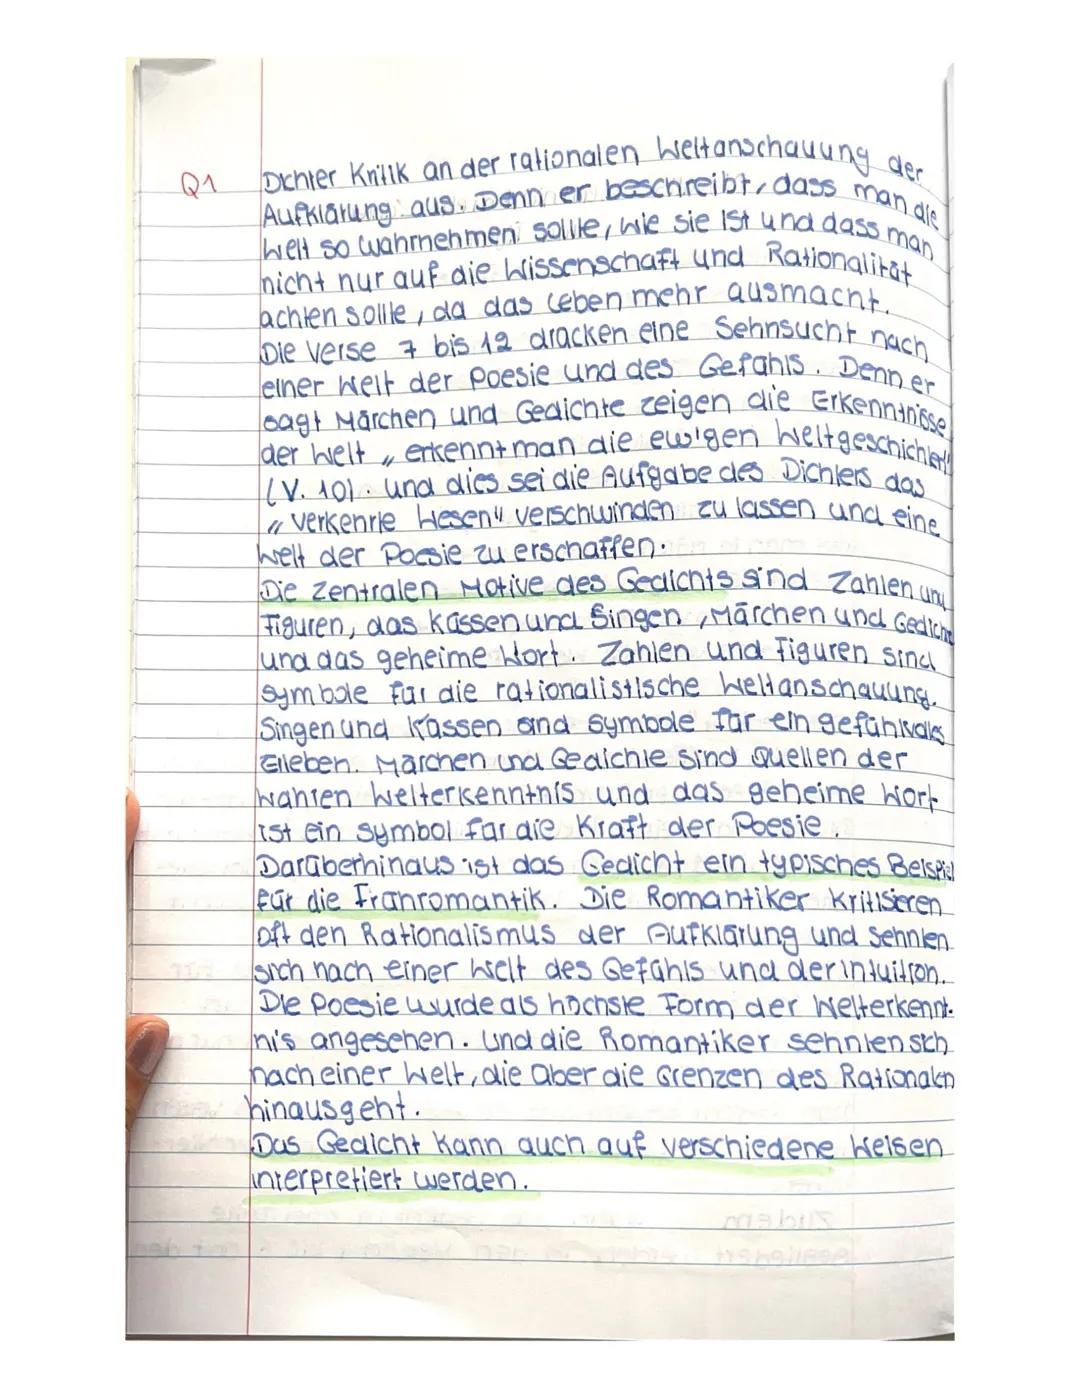 Q1
Dichter Kritik an der rationalen Weltanschauung der
Aufklärung aus. Denn er beschreibt, dass man die
Welt so wahrnehmen sollte, wie sie ist und dass man
nicht nur auf die Wissenschaft und Rationalität
achten sollte, da das Leben mehr ausmacht.
Die Verse 7 bis 12 drücken eine Sehnsucht nach
einer Welt der Poesie und des Gefühls. Denn er
sagt Märchen und Gedichte zeigen die Erkenntnisse
der Welt „erkennt man die ew'gen Weltgeschichten"
(V. 10). und dies sei die Aufgabe des Dichters das
„verkehrte Wesen" verschwinden zu lassen und eine
Welt der Poesie zu erschaffen.
Die zentralen Motive des Gedichts sind Zahlen und
Figuren, das Küssen und Singen, Märchen und Gedichte
und das geheime Wort. Zahlen und Figuren sind
symbole für die rationalistische Weltanschauung.
Singen und Küssen sind symbole für ein gefühlvolles
Erleben. Märchen und Gedichte sind Quellen der
wahren Welterkenntnis und das geheime Wort
ist ein symbol für die Kraft der Poesie.
Darüberhinaus ist das Gedicht ein typisches Beispiel
für die Frühromantik. Die Romantiker kritisieren
oft den Rationalismus der Aufklärung und sehnten
sich nach einer Welt des Gefühls und der Intuition.
Die Poesie wurde als höchste Form der Welterkennt-
nis angesehen. und die Romantiker sehnten sich
nach einer Welt, die über die Grenzen des Rationalen
hinausgeht.
Das Gedicht kann auch auf verschiedene Weisen
interpretiert werden.